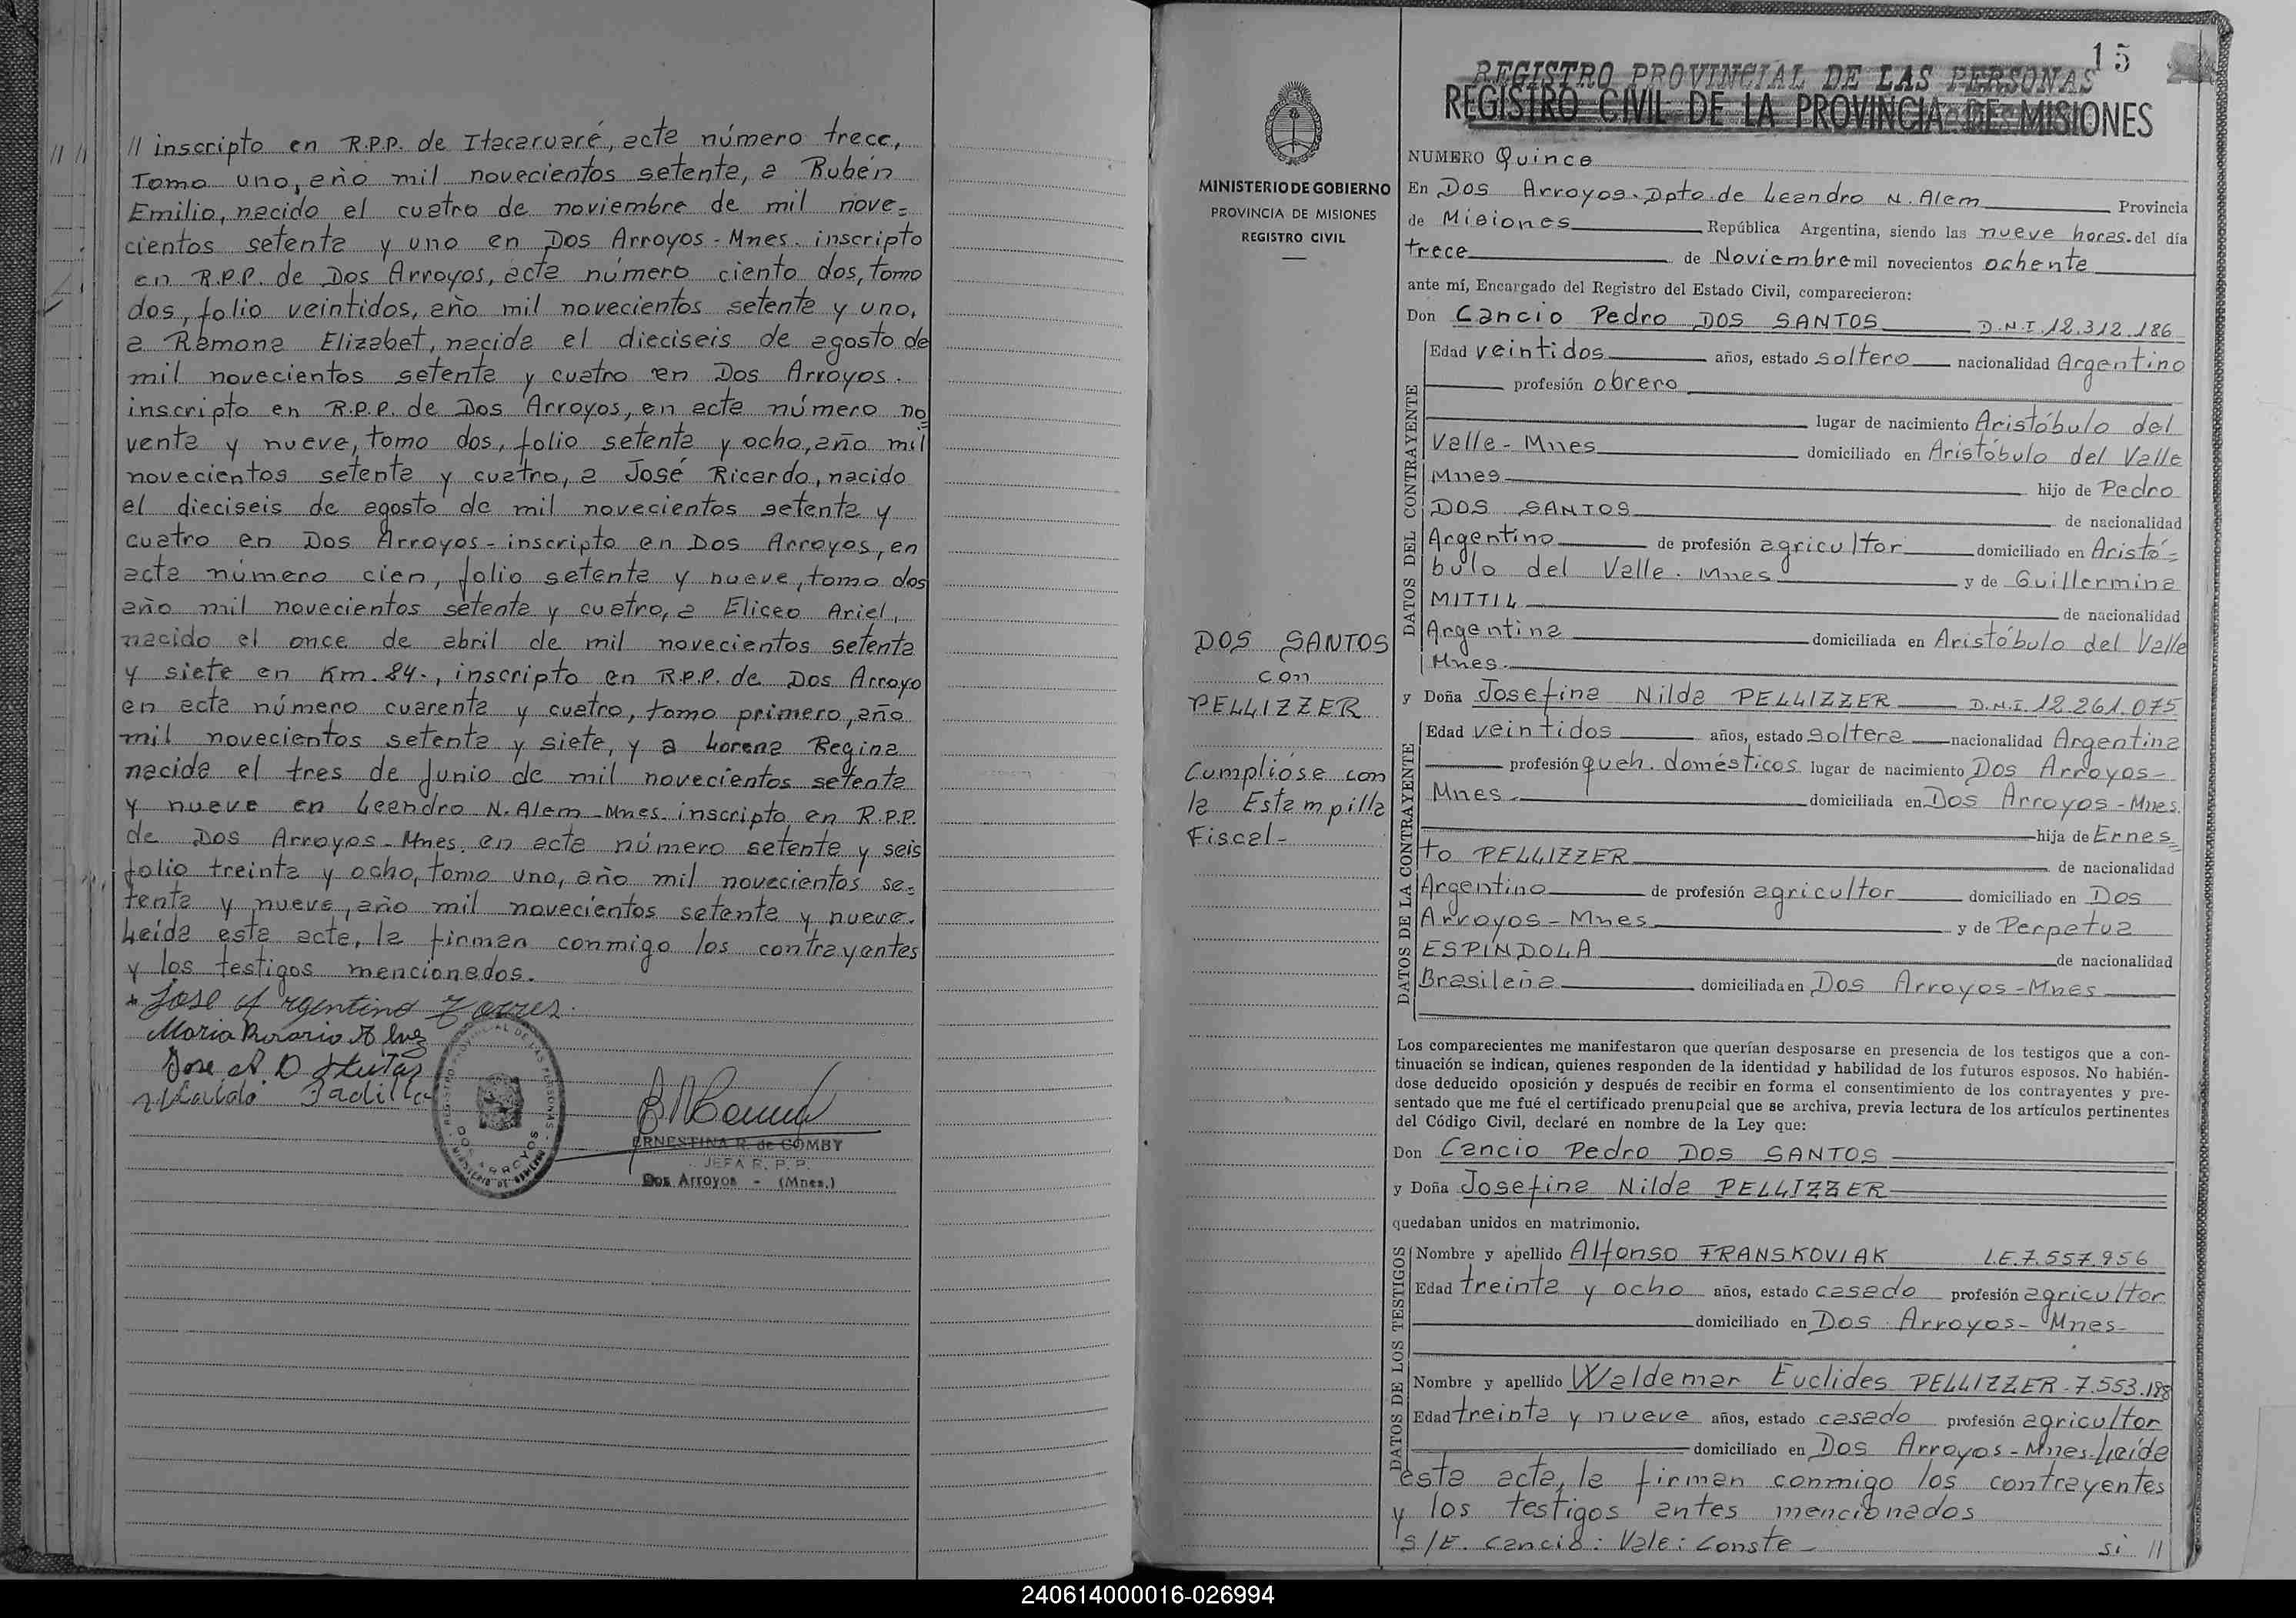 // inscripto en R.P.P. de Itacaruaré, acta número trece,
Tomo uno, año mil novecientos setenta, a Rubén
Emilio, nacido el cuatro de noviembre de mil nove=
cientos setenta y uno en Dos Arroyos - Mnes. inscripto
en R.P.P. de Dos Arroyos, acta número ciento dos, tomo
dos, folio veintidos, año mil novecientos setenta y uno,
a Ramona Elizabet, nacida el dieciseis de agosto de
mil novecientos setenta y cuatro en Dos Arroyos.
inscripto en R.P.P. de Dos Arroyos, en acta número no=
venta y nueve, tomo dos, folio setenta y ocho, año mil
novecientos setenta y cuatro, a José Ricardo, nacido
el dieciseis de agosto de mil novecientos setenta y
cuatro en Dos Arroyos - inscripto en Dos Arroyos, en
acta número cien, folio setenta y nueve, tomo dos
año mil novecientos setenta y cuatro, a Eliceo Ariel,
nacido el once de abril de mil novecientos setenta
y siete en Km. 84-, inscripto en R.P.P. de Dos Arroyo
en acta número cuarenta y cuatro, tomo primero, año
mil novecientos setenta y siete, y a Lorena Regina
nacida el tres de Junio de mil novecientos setenta
y nueve en Leandro N. Alem - Mnes. inscripto en R.P.P.
de Dos Arroyos - Mnes. en acta número setenta y seis
folio treinta y ocho, Tomo uno, año mil novecientos se=
tenta y nueve, año mil novecientos setenta y nueve.
Leída esta acta, la firman conmigo los contrayentes
y los testigos mencionados.
Jose Argentino Torres
Maria Rosario
Jose A D
Padilla
REGISTRO PROVINCIAL DE LAS PERSONAS
DOS ARROYOS
MINISTERIO DE GOBIERNO
ERNESTINA R. de COMBY
JEFA R. P. P.
Dos Arroyos - (Mnes.)
15
REGISTRO PROVINCIAL DE LAS PERSONAS
REGISTRO CIVIL DE LA PROVINCIA DE MISIONES
MINISTERIO DE GOBIERNO
PROVINCIA DE MISIONES
REGISTRO CIVIL
DOS SANTOS
con
PELLIZZER
Cumplióse con
la Estampilla
Fiscal-
NUMERO Quince
En Dos Arroyos. Dpto. de Leandro N. Alem Provincia
de Misiones República Argentina, siendo las nueve horas. del día
trece de Noviembre mil novecientos ochenta
ante mí, Encargado del Registro del Estado Civil, comparecieron:
Don Cancio Pedro DOS SANTOS D.N.I. 12.312.186
DATOS DEL CONTRAYENTE
Edad veintidos años, estado soltero nacionalidad Argentino
profesión obrero
lugar de nacimiento Aristóbulo del
Valle - Mnes domiciliado en Aristóbulo del Valle
Mnes hijo de Pedro
DOS SANTOS de nacionalidad
Argentino de profesión agricultor domiciliado en Aristó=
bulo del Valle. Mnes y de Guillermina
MITTIL de nacionalidad
Argentina domiciliada en Aristóbulo del Valle
Mnes.
y Doña Josefina Nilda PELLIZZER D.N.I. 12.261.075
DATOS DE LA CONTRAYENTE
Edad veintidos años, estado soltera nacionalidad Argentina
profesión queh. domésticos lugar de nacimiento Dos Arroyos-
Mnes. domiciliada en Dos Arroyos - Mnes.
hija de Ernes=
to PELLIZZER de nacionalidad
Argentino de profesión agricultor domiciliado en Dos
Arroyos - Mnes y de Perpetua
ESPINDOLA de nacionalidad
Brasileña domiciliada en Dos Arroyos - Mnes
Los comparecientes me manifestaron que querían desposarse en presencia de los testigos que a con-
tinuación se indican, quienes responden de la identidad y habilidad de los futuros esposos. No habién-
dose deducido oposición y después de recibir en forma el consentimiento de los contrayentes y pre-
sentado que me fué el certificado prenupcial que se archiva, previa lectura de los artículos pertinentes
del Código Civil, declaré en nombre de la Ley que:
Don Cancio Pedro DOS SANTOS
y Doña Josefina Nilda PELLIZZER
quedaban unidos en matrimonio.
DATOS DE LOS TESTIGOS
Nombre y apellido Alfonso FRANSKOVIAK L.E. 7.557.956
Edad treinta y ocho años, estado casado profesión agricultor
domiciliado en Dos Arroyos - Mnes-
Nombre y apellido Waldemar Euclides PELLIZZER - 7.553.188
Edad treinta y nueve años, estado casado profesión agricultor
domiciliado en Dos Arroyos - Mnes. Leída
esta acta, la firman conmigo los contrayentes
y los testigos antes mencionados
S/E. Cancio: Vale: Conste - si //
240614000016-026994